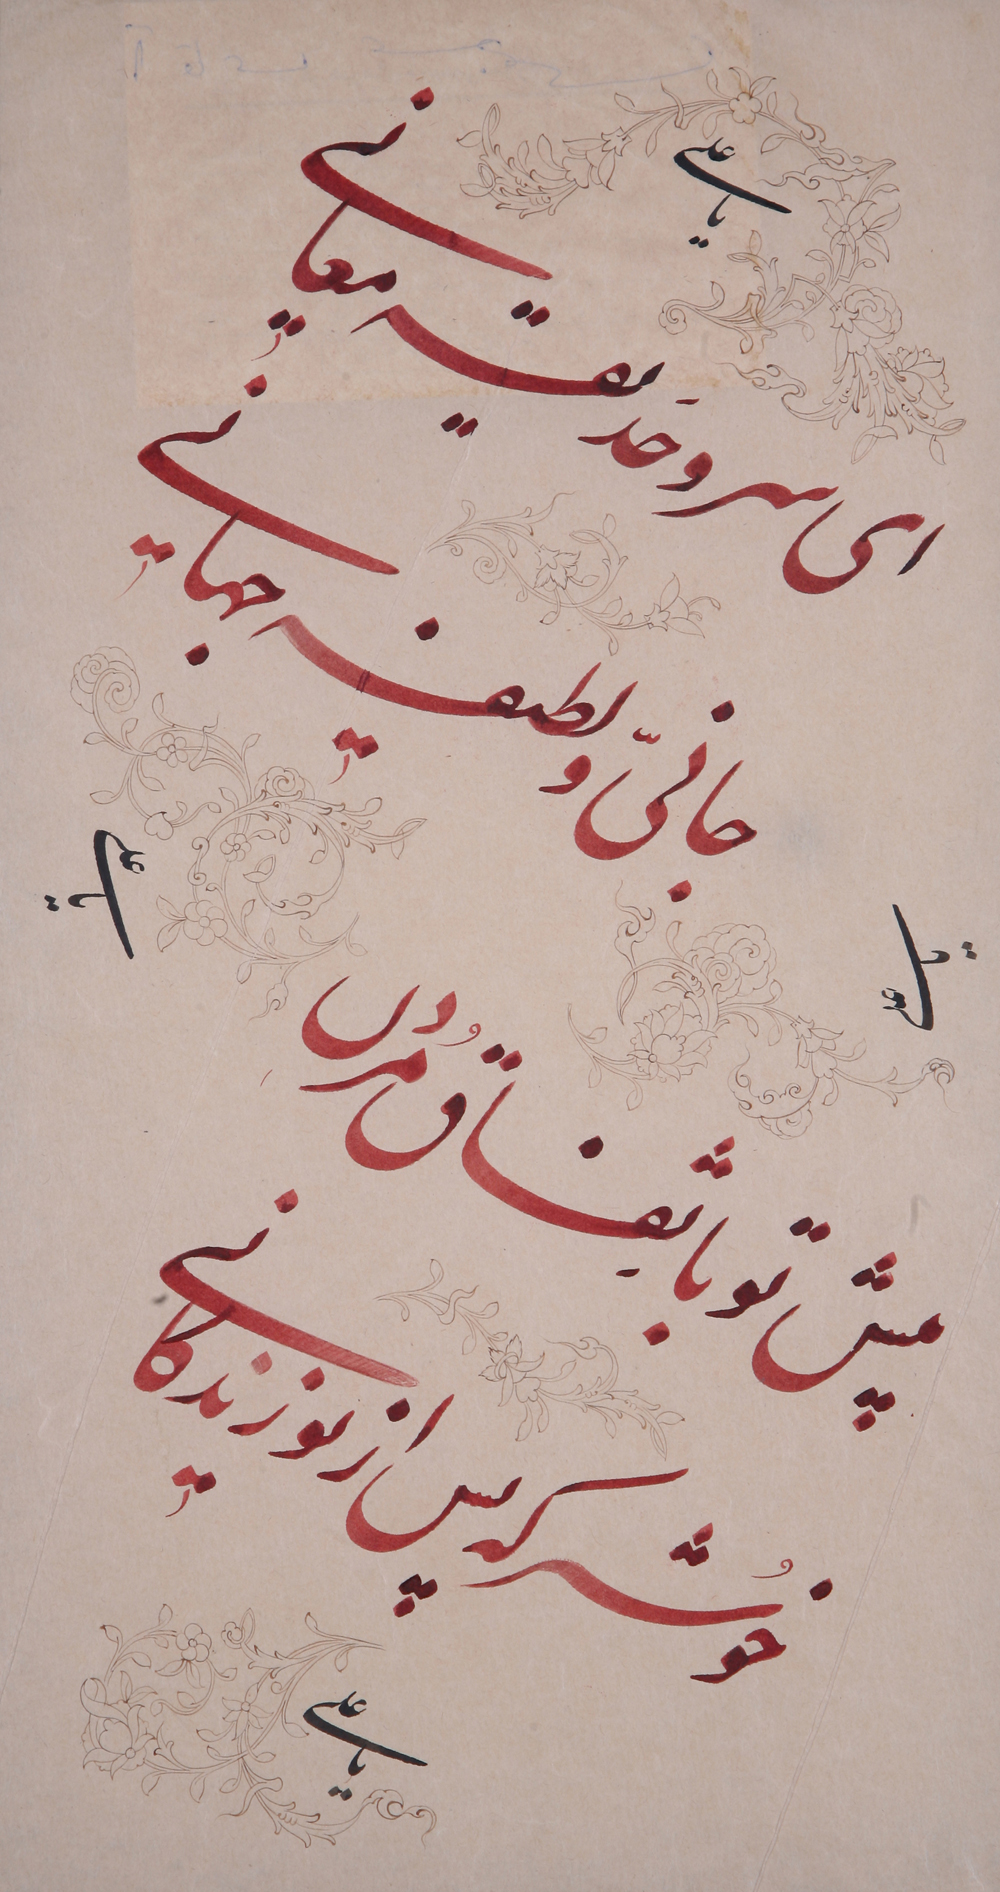 یا علی
ای سرو حدیقه معانی
جانیّ و لطیفه جهانی
یا علی
یا علی
پیش تو باتفاق مُردن
خوشتر که پس از تو زندگانی
یا علی